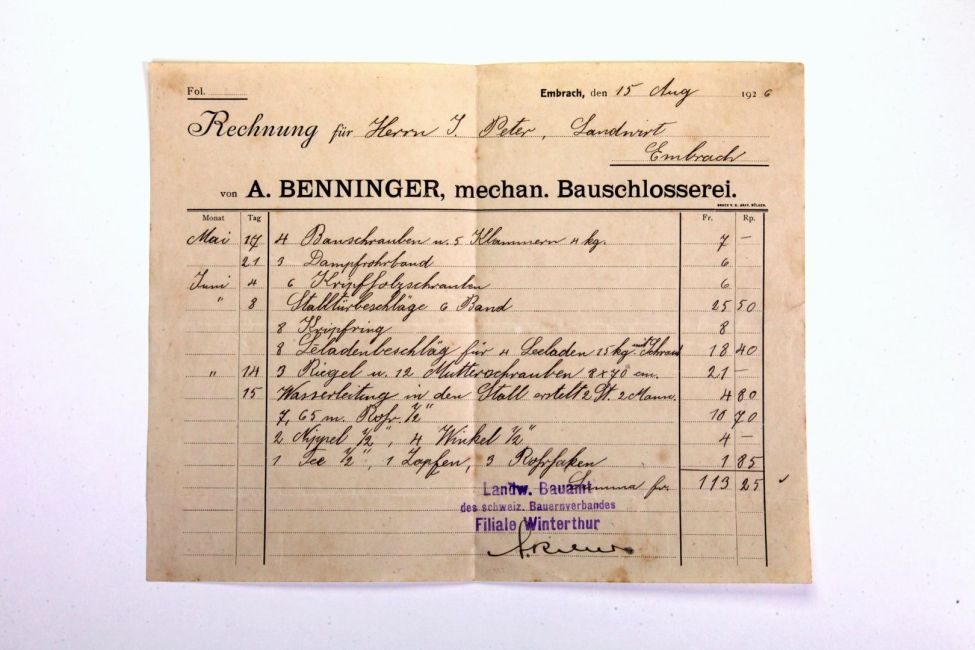 Fol.
Embrach, den 15 Aug 1926
Rechnung für Herrn J. Peter, Landwirt
Embrach
von A. BENNINGER, mechan. Bauschlosserei.
Monat Tag Fr. Rp.
Mai 17 4 Bauschrauben u. 5 Klammern 4 kg. 7 -
21 3 Dampfrohrband 6
Juni 4 6 Kripfholzschrauben 6
" 8 Stalltürbeschläge 6 Band 25 50
8 Kripfring 8
8 für 4 15 kg mit Schraub 18 40
" 14 3 Riegel u. 12 Mutterschrauben 8 x 70 cm. 21 -
15 Wasserleiting in den Stall erstelt 2 St. 2 Mann. 4 80
7,65 m. Rohr. 1/2" 10 70
2 Nippel 1/2", 4 Winkel 1/2" 4 -
1 Tee 1/2", 1 Zapfen, 3 Rohrhaken 1 85
Summa fr. 113 25
Landw. Bauamt
des schweiz. Bauernverbandes
Filiale Winterthur